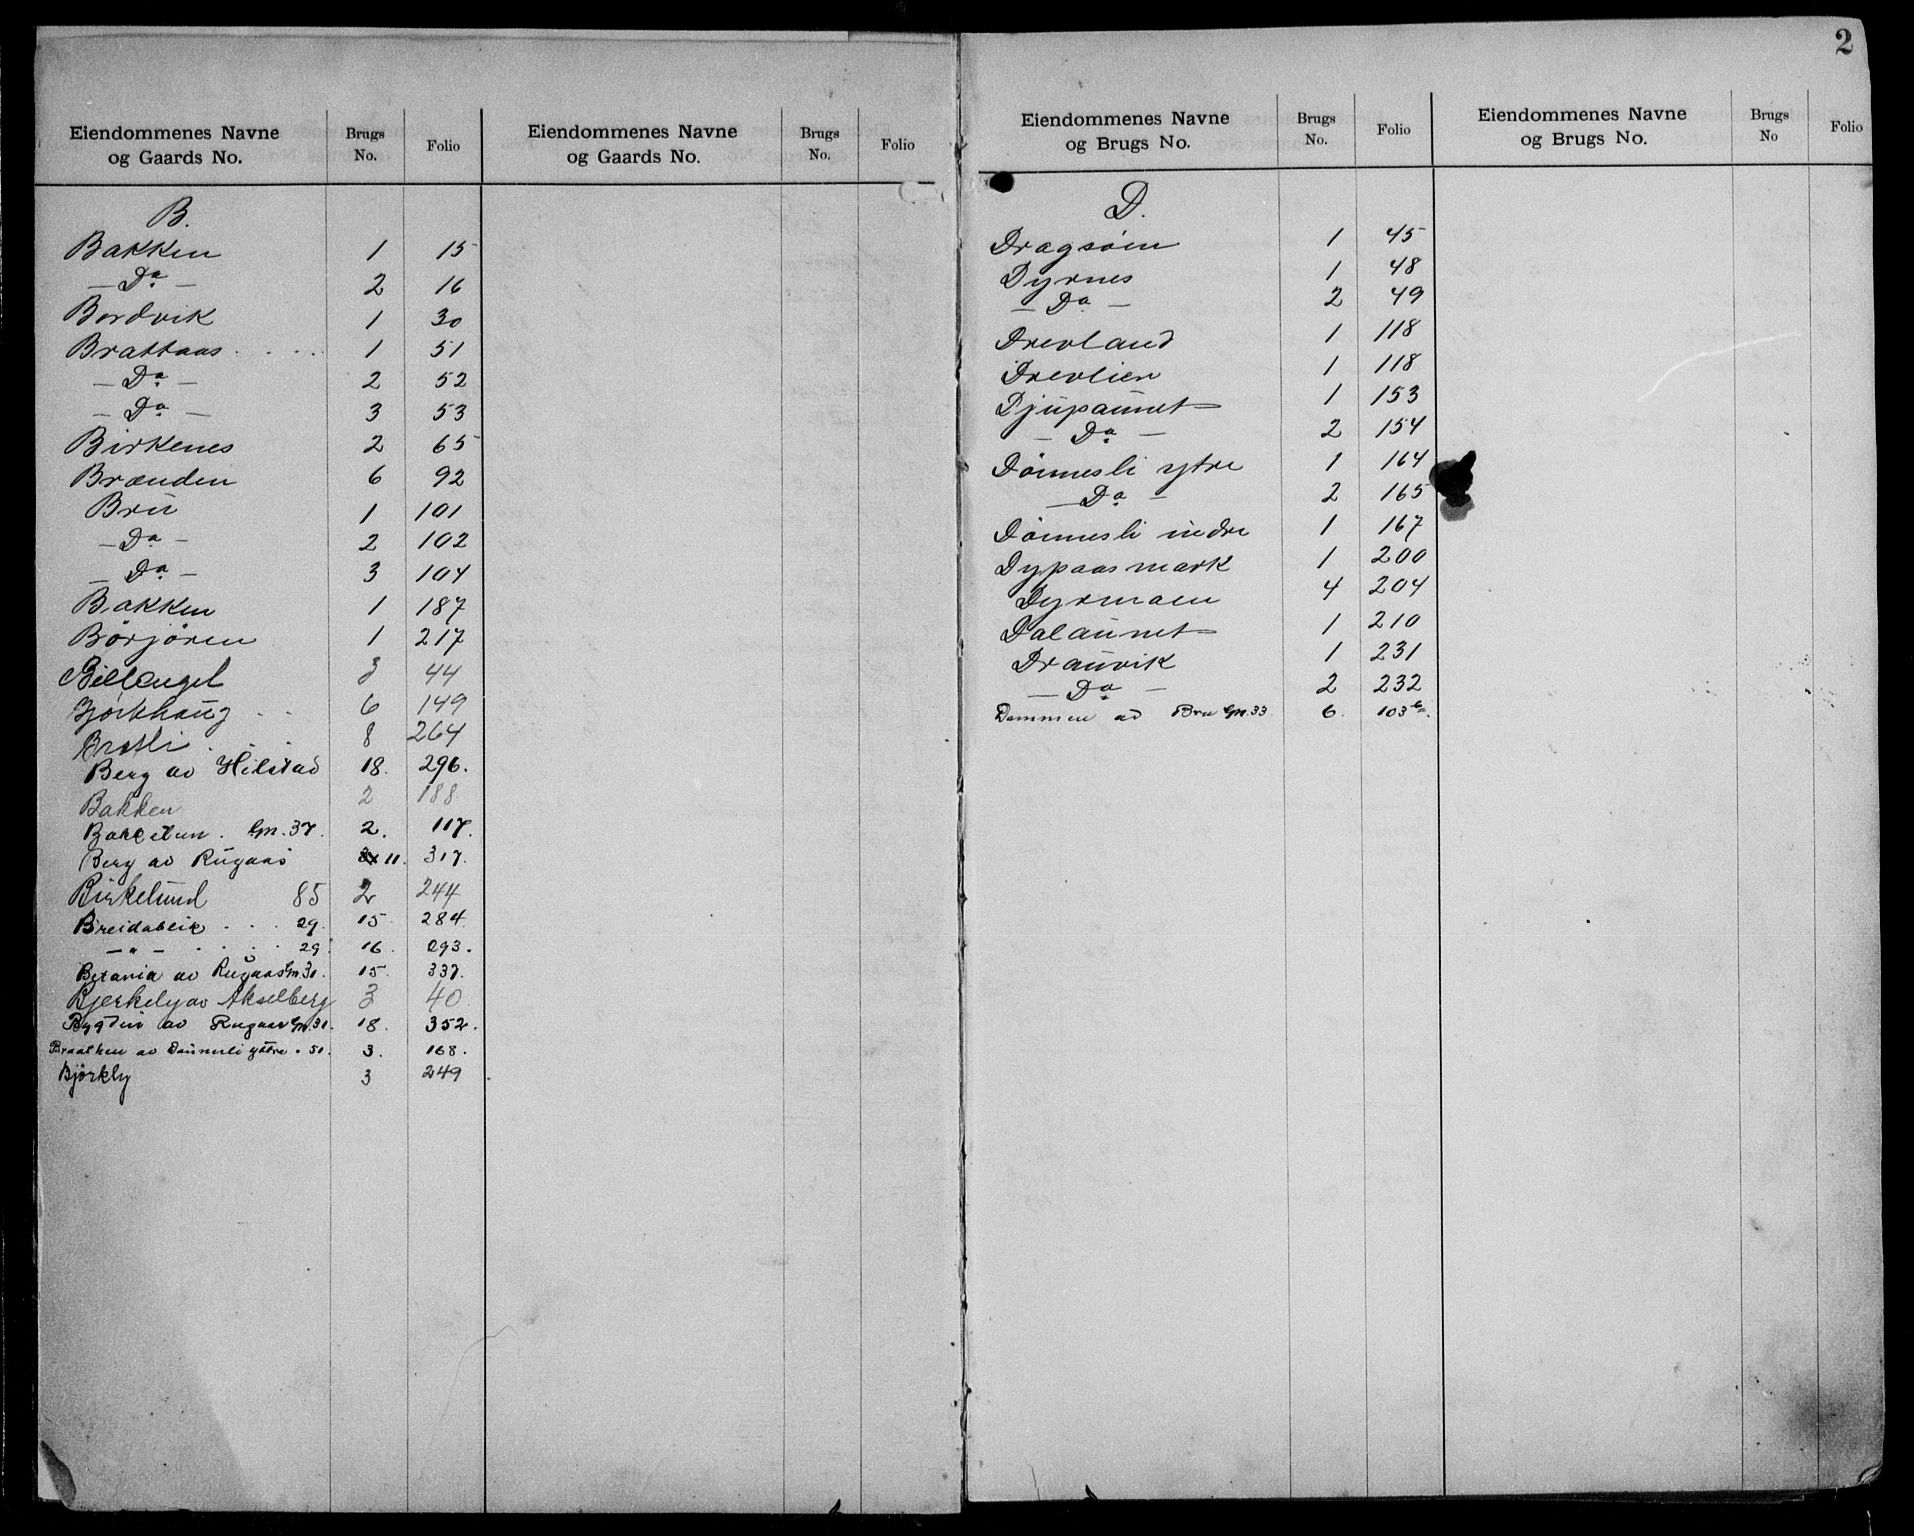 2
Eiendommenes Navne og Gaards No. Brugs No. Folio
Eiendommenes Navne og Gaards No. Brugs No. Folio
B.
Bakken 1 15
— Do — 2 16
Bordvik 1 30
Brattaas . . . . 1 51
— Do — 2 52
— Do — 3 53
Birkenes 2 65
Brænden 6 92
Brú 1 101
— Do — 2 102
— Do — 3 104
Bakken 1 187
Börjören 1 217
Billengel 3 44
Bjørkhaug . . 6 149
Bratli . . . 8 264
Berg av Hilstad 18. 296.
Bakken 2 188
Bakketun . Gn. 37. 2. 117.
Berg av Rugaas 11. 317.
Birkelund 85 2 244
Breidablik . . . 29. 15 284
— " — . . . . 29. 16. 293.
Betania av Rugaas Gn. 31. 15. 337.
Bjerkely av Akselberg 3 40
Bygdin av Rugaas Gn. 31. 18. 352.
Braathen av Dønnesli ytre . 51. 3. 168.
Björkly 3 249
Eiendommenes Navne og Brugs No. Brugs No. Folio
Eiendommenes Navne og Brugs No. Brugs No Folio
D.
Dragsöien 1 45
Dyrnes 1 48
— Do — 2 49
Drevland 1 118
Drevlien 1 118
Djupaunet 1 153
— Do — 2 154
Dönnesli ytre 1 164
— Do — 2 165
Dönnesli indre 1 167
Dypaasmark 1 200
Dyrmoen 4 204
Dalaunet 1 210
Drauvik 1 231
— Do — 2 232
Dammen av Bru Gn. 33 6. 103 b.